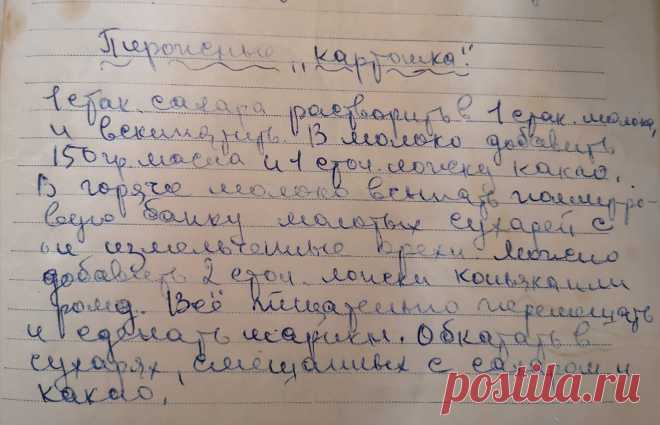 Пирожение „картошка".
1 стак. сахара растворить в 1 стак. молока,
и вскипятить. В молоко добавить
150 гр. масла и 1 стол. ложку какао.
В горяче молоко всыпать полит-ро-
вую банку молотых сухарей с
и измельченные орехи. Можно
добавить 2 стол. ложки коньяка или
рома. Всё тщательно перемешать
и сделать шарики. Обкатать в
сухарях, смешанных с сахаром и
какао.
postila.ru